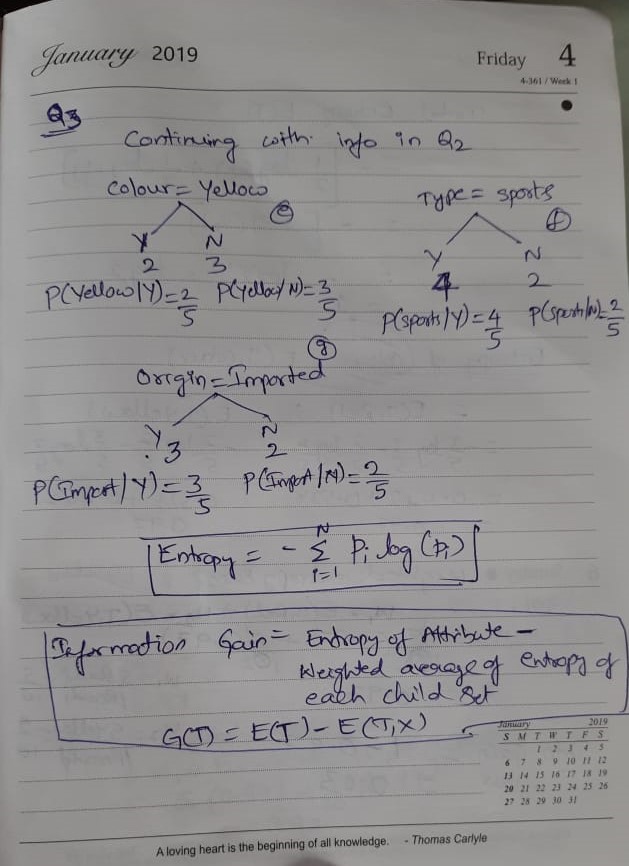 January 2019 Friday 4
4-361 / Week 1
Q3
Continuing with info in Q2
Colour = Yellow
(e)
Y N
2 3
P(Yellow/Y) = 2/5 P(Yellow/N) = 3/5
Type = sports
(f)
Y N
4 2
P(sports/Y) = 4/5 P(sports/N) = 2/5
(g)
Origin = Imported
Y N
3 2
P(Import/Y) = 3/5 P(Import/N) = 2/5
Entropy = - N Σ i=1 Pi log (Pi)
Information Gain = Entropy of Attribute -
Weighted average of entropy of
each child set
G(T) = E(T) - E(T,X)
January 2019
S M T W T F S
1 2 3 4 5
6 7 8 9 10 11 12
13 14 15 16 17 18 19
20 21 22 23 24 25 26
27 28 29 30 31
A loving heart is the beginning of all knowledge. - Thomas Carlyle